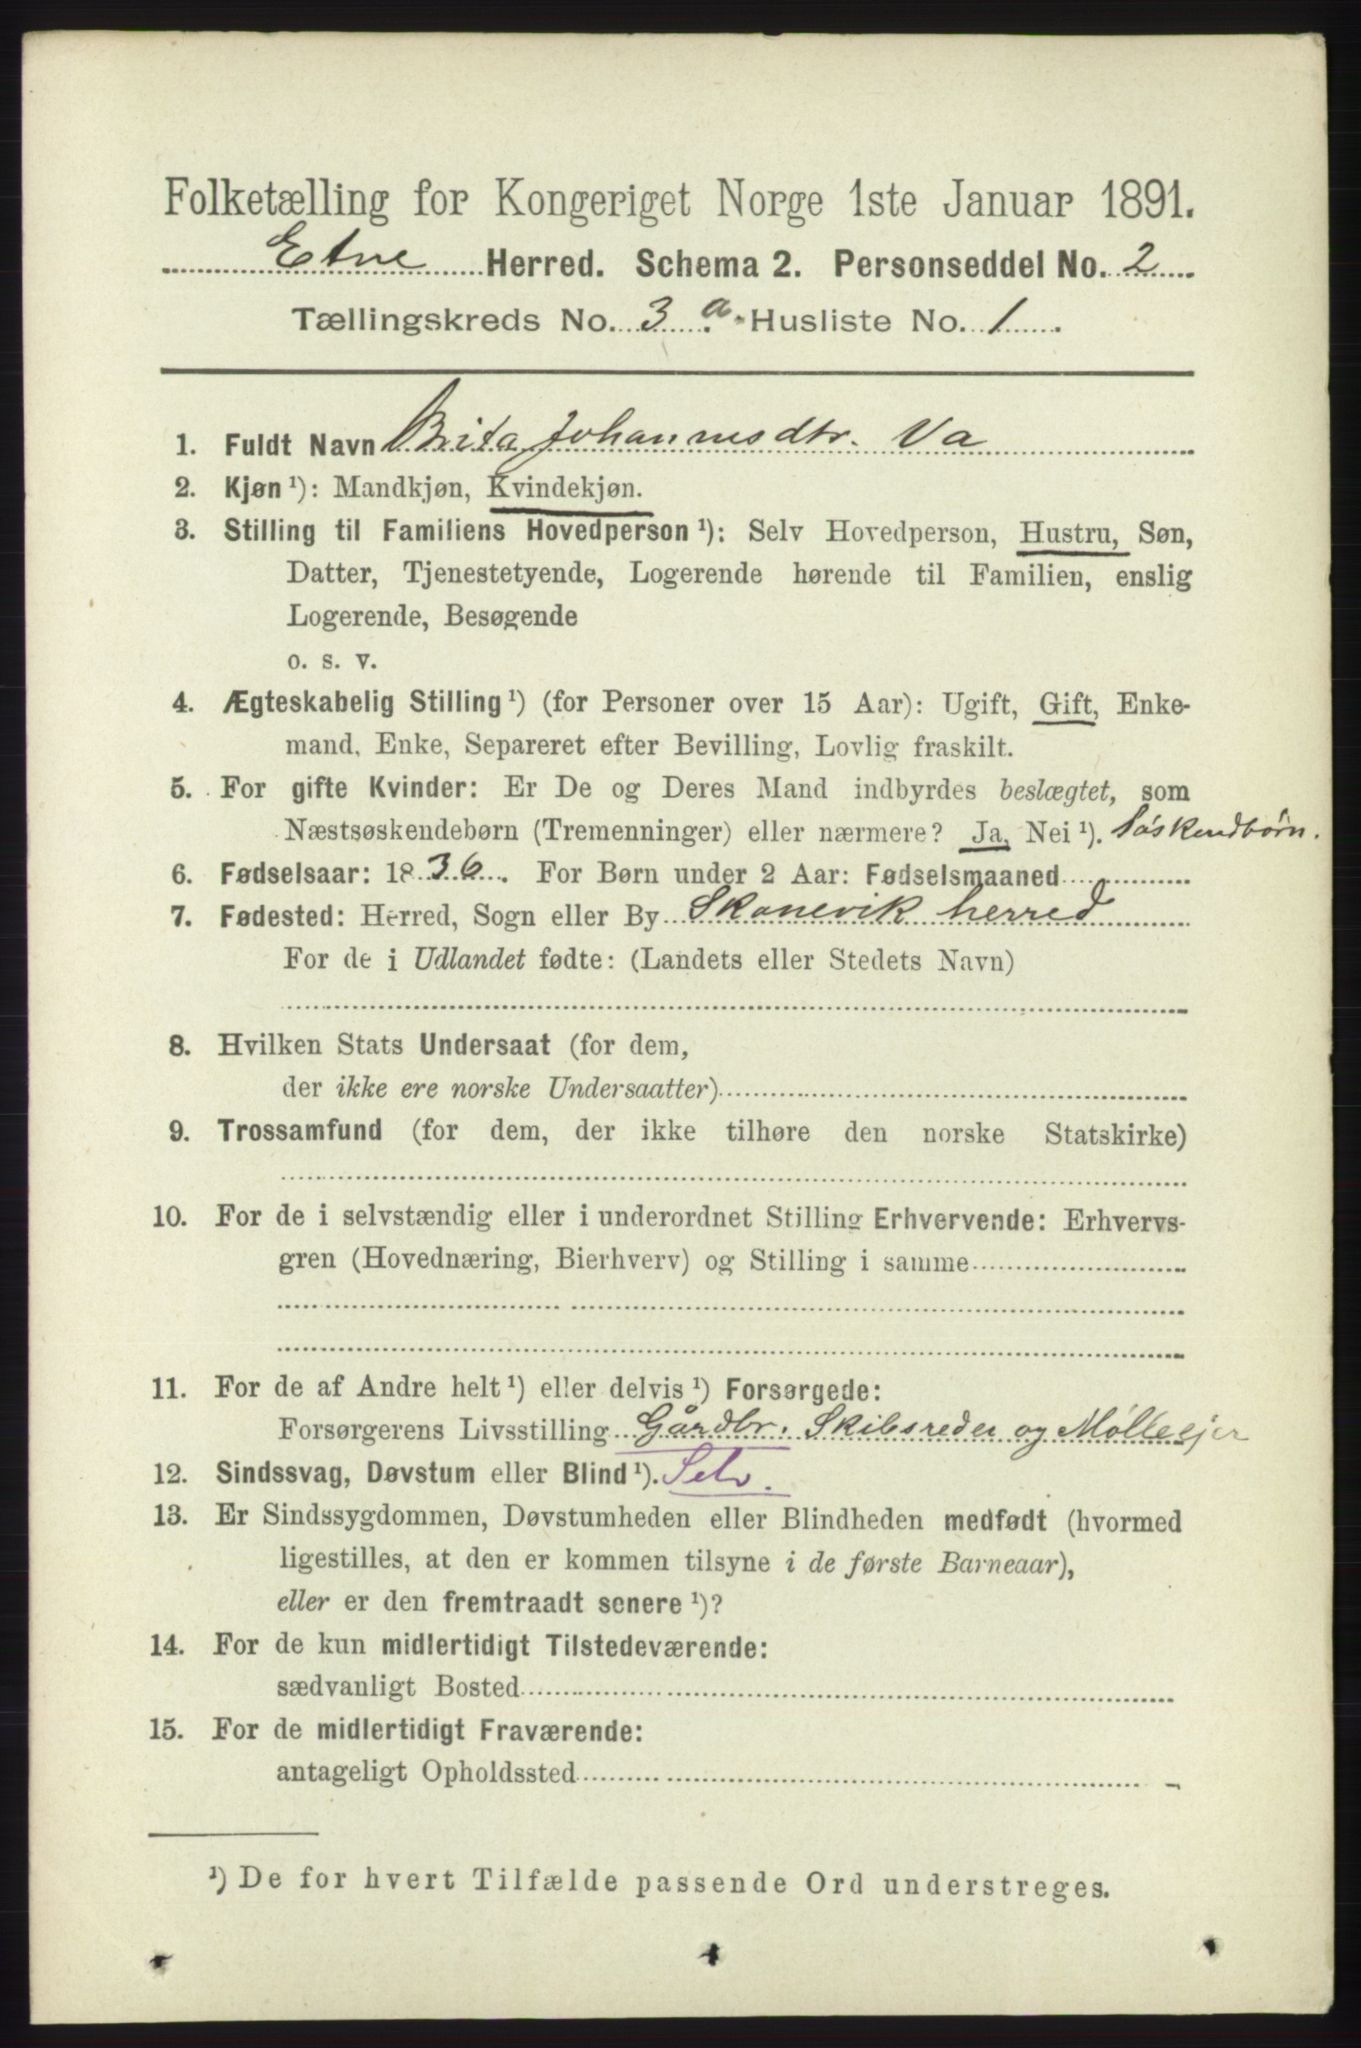 Folketælling for Kongeriget Norge 1ste Januar 1891.
Etne Herred. Schema 2. Personseddel No. 2
Tællingskreds No. 3 a. Husliste No. 1.
1. Fuldt Navn Brita Johannesdtr. Va
2. Kjøn ¹): Mandkjøn, Kvindekjøn.
3. Stilling til Familiens Hovedperson ¹): Selv Hovedperson, Hustru, Søn,
Datter, Tjenestetyende, Logerende hørende til Familien, enslig
Logerende, Besøgende
o. s. v.
4. Ægteskabelig Stilling ¹) (for Personer over 15 Aar): Ugift, Gift, Enke-
mand, Enke, Separeret efter Bevilling, Lovlig fraskilt.
5. For gifte Kvinder: Er De og Deres Mand indbyrdes beslægtet, som
Næstsøskendebørn (Tremenninger) eller nærmere? Ja, Nei ¹). Søskendbørn.
6. Fødselsaar: 1836. For Børn under 2 Aar: Fødselsmaaned
7. Fødested: Herred, Sogn eller By Skonevik herred
For de i Udlandet fødte: (Landets eller Stedets Navn)
8. Hvilken Stats Undersaat (for dem,
der ikke ere norske Undersaatter)
9. Trossamfund (for dem, der ikke tilhøre den norske Statskirke)
10. For de i selvstændig eller i underordnet Stilling Erhvervende: Erhvervs-
gren (Hovednæring, Bierhverv) og Stilling i samme
11. For de af Andre helt ¹) eller delvis ¹) Forsørgede:
Forsørgerens Livsstilling Gårdbr. Skibsreder og Mölleejer
12. Sindssvag, Døvstum eller Blind ¹). Selv.
13. Er Sindssygdommen, Døvstumheden eller Blindheden medfødt (hvormed
ligestilles, at den er kommen tilsyne i de første Barneaar),
eller er den fremtraadt senere ¹)?
14. For de kun midlertidigt Tilstedeværende:
sædvanligt Bosted
15. For de midlertidigt Fraværende:
antageligt Opholdssted
¹) De for hvert Tilfælde passende Ord understreges.